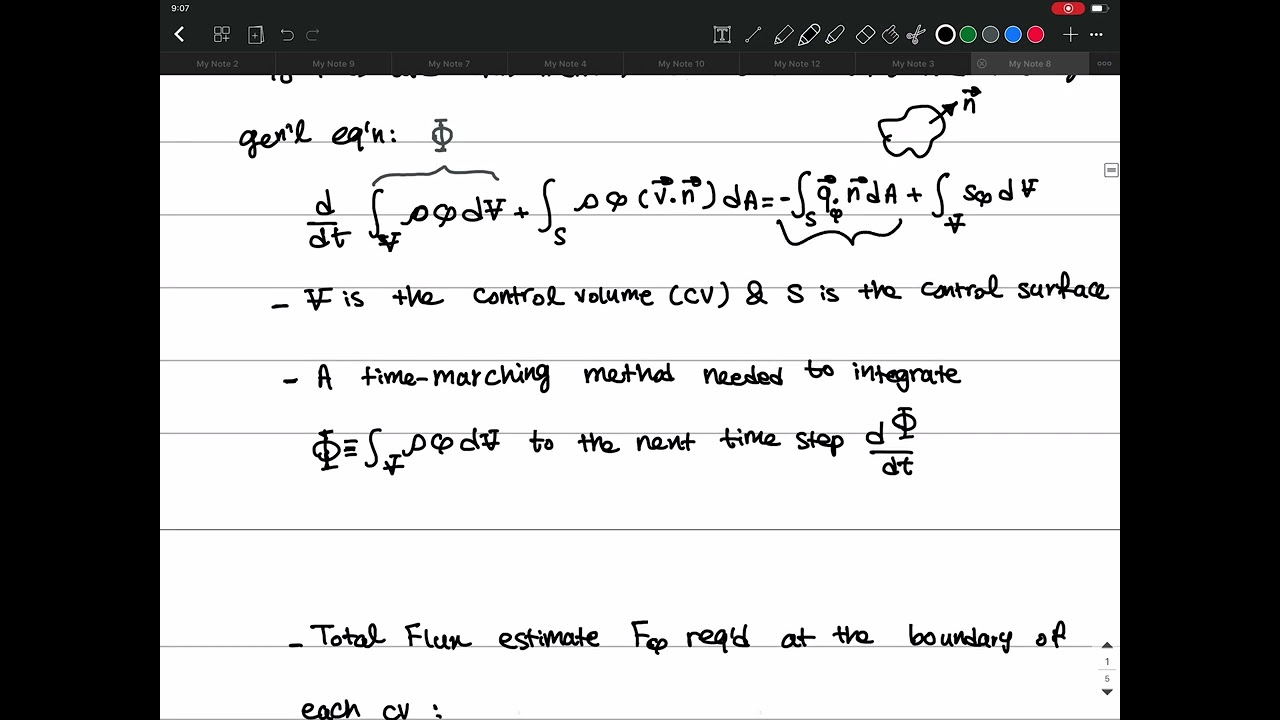 9:07
My Note 2 My Note 9 My Note 7 My Note 4 My Note 10 My Note 12 My Note 3 My Note 8
n⃗
gen'l eq'n: Φ
d/dt ∫_V ρφ dV + ∫_S ρφ (v⃗·n⃗) dA = -∫_S q⃗_φ·n⃗ dA + ∫_V sφ dV
- V is the control volume (CV) & S is the control surface
- A time-marching method needed to integrate
Φ ≡ ∫_V ρφ dV to the next time step dΦ/dt
- Total Flux estimate Fφ req'd at the boundary of
each cv :
1
5